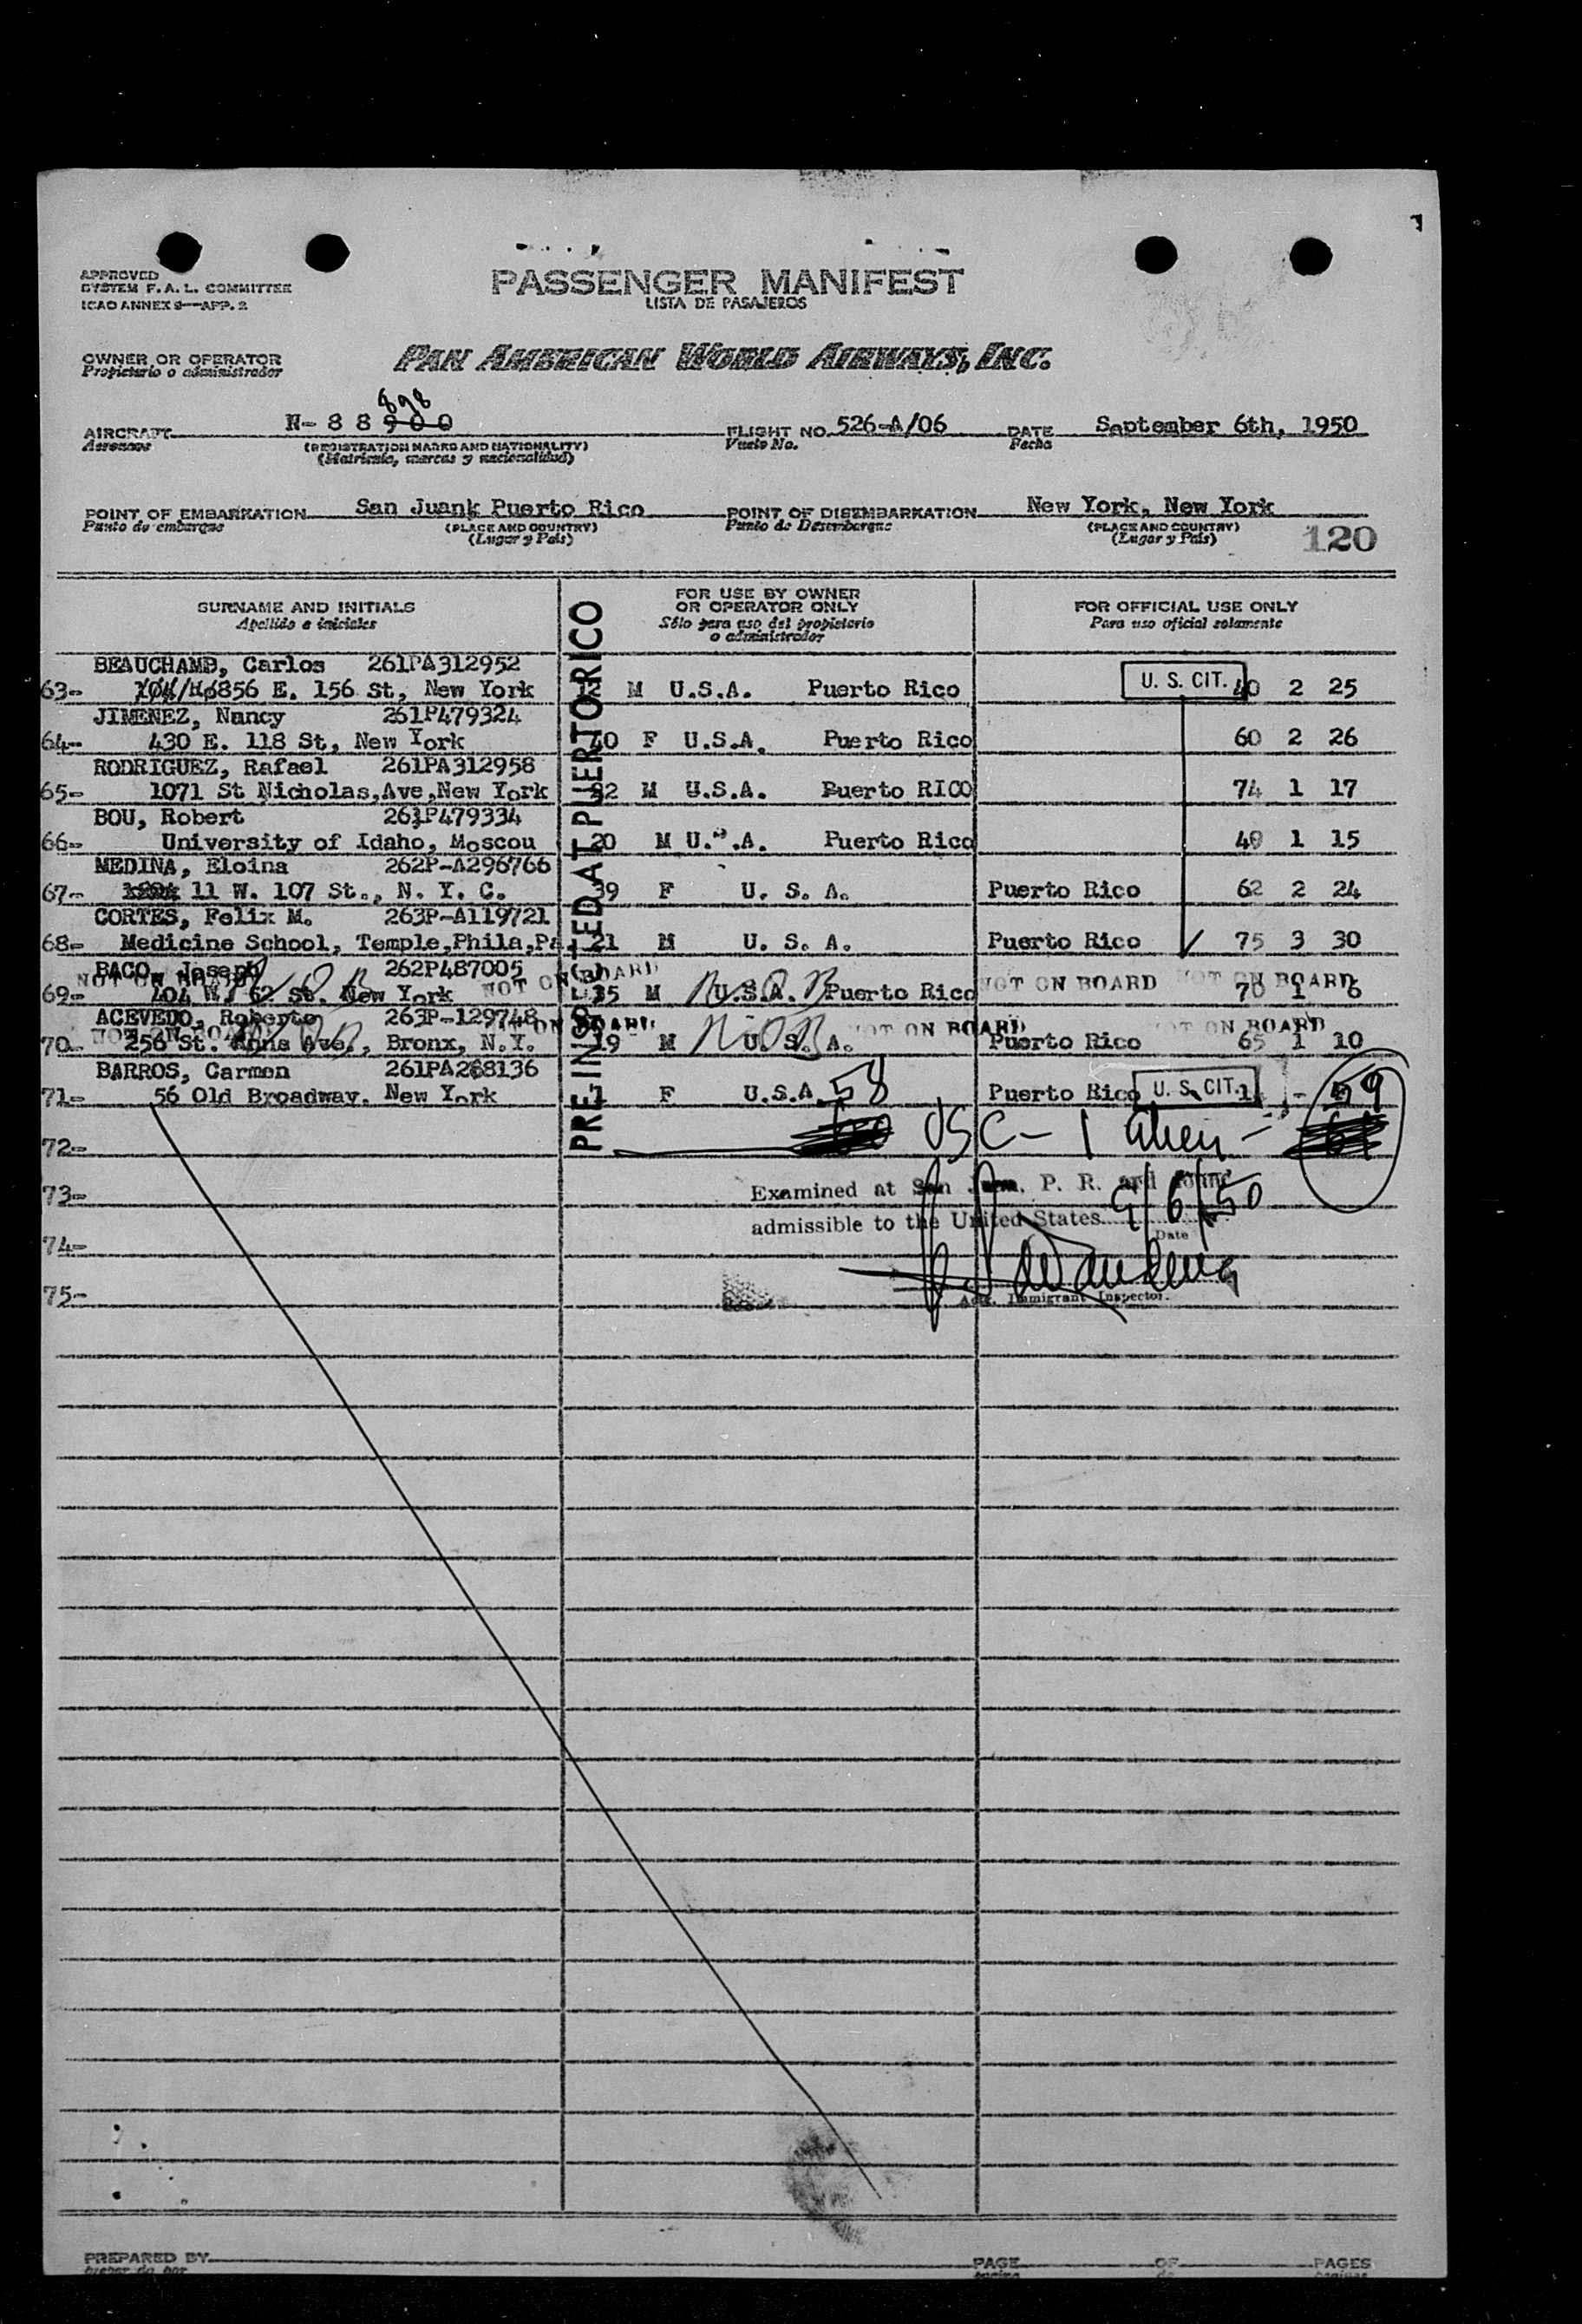 APPROVED
SYSTEM F. A. L. COMMITTEE
ICAO ANNEX 9—APP. 2
PASSENGER MANIFEST
LISTA DE PASAJEROS
OWNER OR OPERATOR
Propietario o administrador
PAN AMERICAN WORLD AIRWAYS, INC.
898
AIRCRAFT N- 8 8 9 0 0 FLIGHT NO. 526-A/06 DATE September 6th, 1950
Aeronave (REGISTRATION MARKS AND NATIONALITY) Vuelo No. Fecha
(Matricula, marcas y nacionalidad)
POINT OF EMBARKATION San Juank Puerto Rico POINT OF DISEMBARKATION New York, New York
Punto de embarque (PLACE AND COUNTRY) Punto de Desembarque (PLACE AND COUNTRY)
(Lugar y País) (Lugar y País) 120
SURNAME AND INITIALS FOR USE BY OWNER OR OPERATOR ONLY FOR OFFICIAL USE ONLY
Apellido e iniciales Sólo para uso del propietario o administrador Para uso oficial solamente
PRE INSPECTED AT PUERTO RICO
BEAUCHAMP, Carlos 261PA312952
63- 856 E. 156 St, New York M U.S.A. Puerto Rico U. S. CIT. 2 25
JIMENEZ, Nancy 261P479324
64- 430 E. 118 St, New York 40 F U.S.A. Puerto Rico 60 2 26
RODRIGUEZ, Rafael 261PA312958
65- 1071 St Nicholas,Ave,New York 22 M U.S.A. Puerto RICO 74 1 17
BOU, Robert 261P479334
66- University of Idaho, Moscou 20 M U.".A. Puerto Rico 49 1 15
MEDINA, Eloina 262P-A296766
67- 11 W. 107 St., N. Y. C. 39 F U. S. A. Puerto Rico 62 2 24
CORTES, Felix M. 263P-A119721
68- Medicine School, Temple,Phila,Pa. 21 M U. S. A. Puerto Rico 75 3 30
BACO, Joseph 262P487005
NOT ON BOARD NOT ON BOARD NOT ON BOARD NOT ON BOARD
69- 404 W. 62 St. New York 35 M N.O.B U.S.A. Puerto Rico 70 1 6
ACEVEDO, Roberto 263P-129748
NOT ON BOARD NOT ON BOARD NOT ON BOARD NOT ON BOARD
70- 256 St. Anns Ave., Bronx, N.Y. 19 M NOB U. S. A. Puerto Rico 65 1 10
BARROS, Carmen 261PA268136
71- 56 Old Broadway. New York 1 F U.S.A. 58 Puerto Rico U. S. CIT. 59
72- USC - 1 alien -
73- Examined at San Juan, P. R. and found
admissible to the United States 9/6/50
Date
74-
75- Immigrant Inspector.
PREPARED BY PAGE OF PAGES